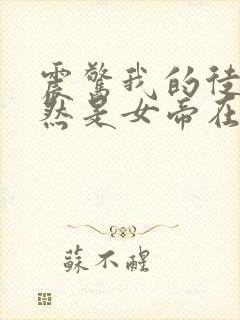 震驚我的徒
然是女帝在
蘇不醒